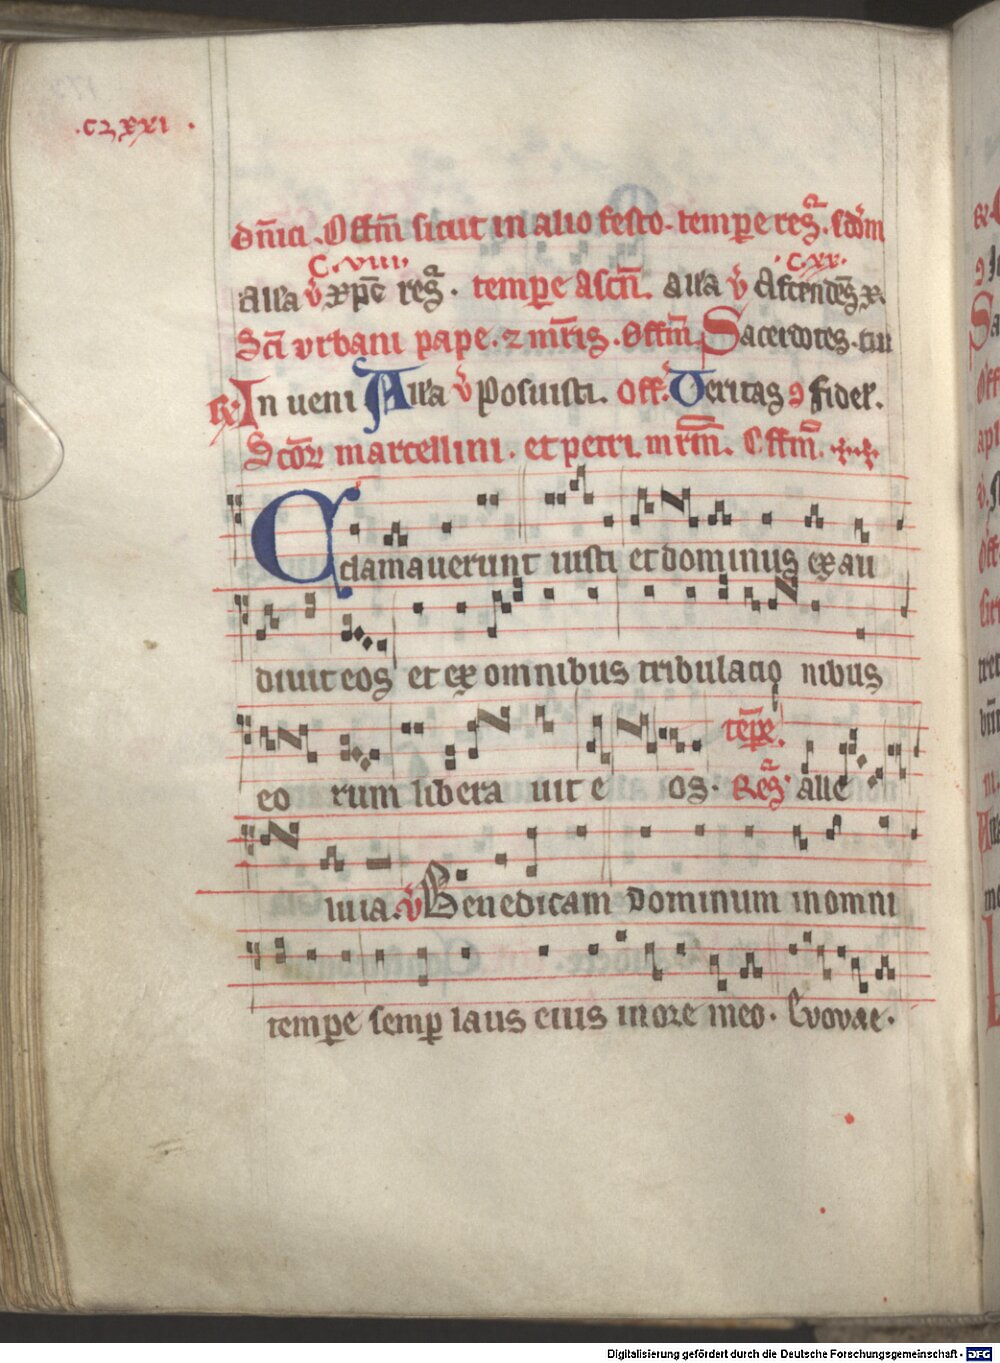 .CLXXI.
dn̄ica. Offm̄ sicut in alio festo. temp̄e res. scdm
C.viii. .C.xx.
all'a v̄ xp̄c res. temp̄e ascn̄. all'a v̄ Ascendēs x.
Sc̄i vrbani pape. z mr̄is. Offm̄. Sacerdotes. tui
R In ueni All'a v̄ Posuisti. Off. Veritas 9 fidel'.
Scōꝝ marcellini. et petri mr̄m̄. Offm̄.
Clamauerunt iusti et dominus exau
diuit eos et ex omnibus tribulatio nibus
eo rum libera uit e os. temp̄e Res alle
luia. v̄ Benedicam dominum in omni
tempe semp laus eius in ore meo. Evovae.
Digitalisierung gefördert durch die Deutsche Forschungsgemeinschaft - DFG